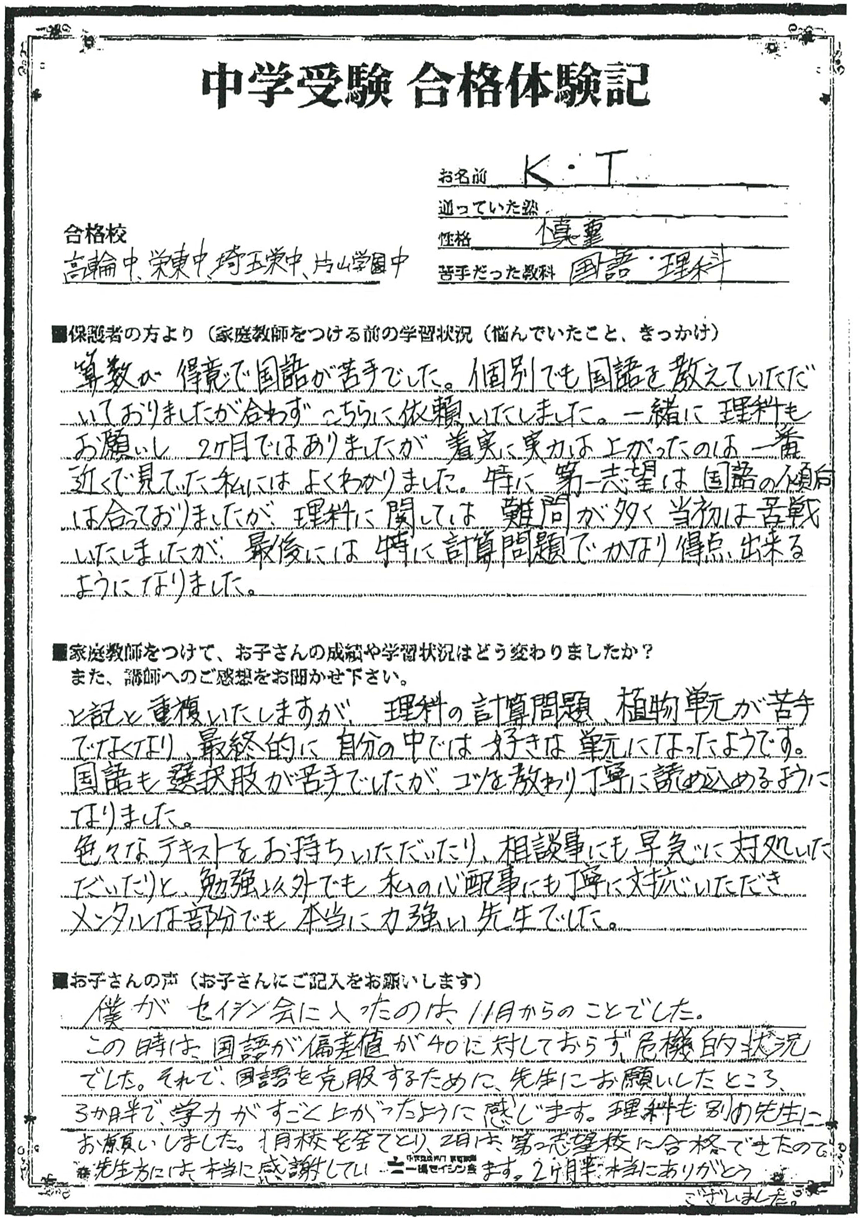 中学受験 合格体験記
お名前 K・T
通っていた塾
合格校
性格 慎重
高輪中、栄東中、埼玉栄中、片山学園中
苦手だった教科 国語・理科
■保護者の方より（家庭教師をつける前の学習状況（悩んでいたこと、きっかけ）
算数が得意で国語が苦手でした。個別でも国語を教えていただ
いておりましたが合わずこちらに依頼いたしました。一緒に理科も
お願いし 2ヶ月ではありましたが 着実に実力は上がったのは一番
近くで見ていた私にはよくわかりました。特に 第一志望は国語の傾向
は合っておりましたが、理科に関しては 難問が多く当初は苦戦
いたしましたが 最後には特に計算問題でかなり得点、出来る
ようになりました。
■家庭教師をつけて、お子さんの成績や学習状況はどう変わりましたか？
また、講師へのご感想をお聞かせ下さい。
上記と重複いたしますが、理科の計算問題、植物単元が苦手
でなくなり、最終的に自分の中では好きな単元になったようです。
国語も選択肢が苦手でしたが、コツを教わり丁寧に読め込めるように
なりました。
色々なテキストをお持ちいただいたり、相談事にも早急に対処いた
だいたりと、勉強以外でも私の心配事にも丁寧に対応いただき
メンタルな部分でも本当に力強い先生でした。
■お子さんの声（お子さんにご記入をお願いします）
僕がセイシン会に入ったのは、11月からのことでした。
この時は、国語が偏差値が40に対しておらず危機的状況
でした。それで、国語を克服するために、先生にお願いしたところ、
3か月半で、学力がすごく上がったように感じます。理科も別の先生に
お願いしました。1月校を全てとり、2月は、第二志望校に合格できたので
先生方には、本当に感謝してい 一橋セイシン会 ます。2ヶ月半本当にありがとう
ございました。